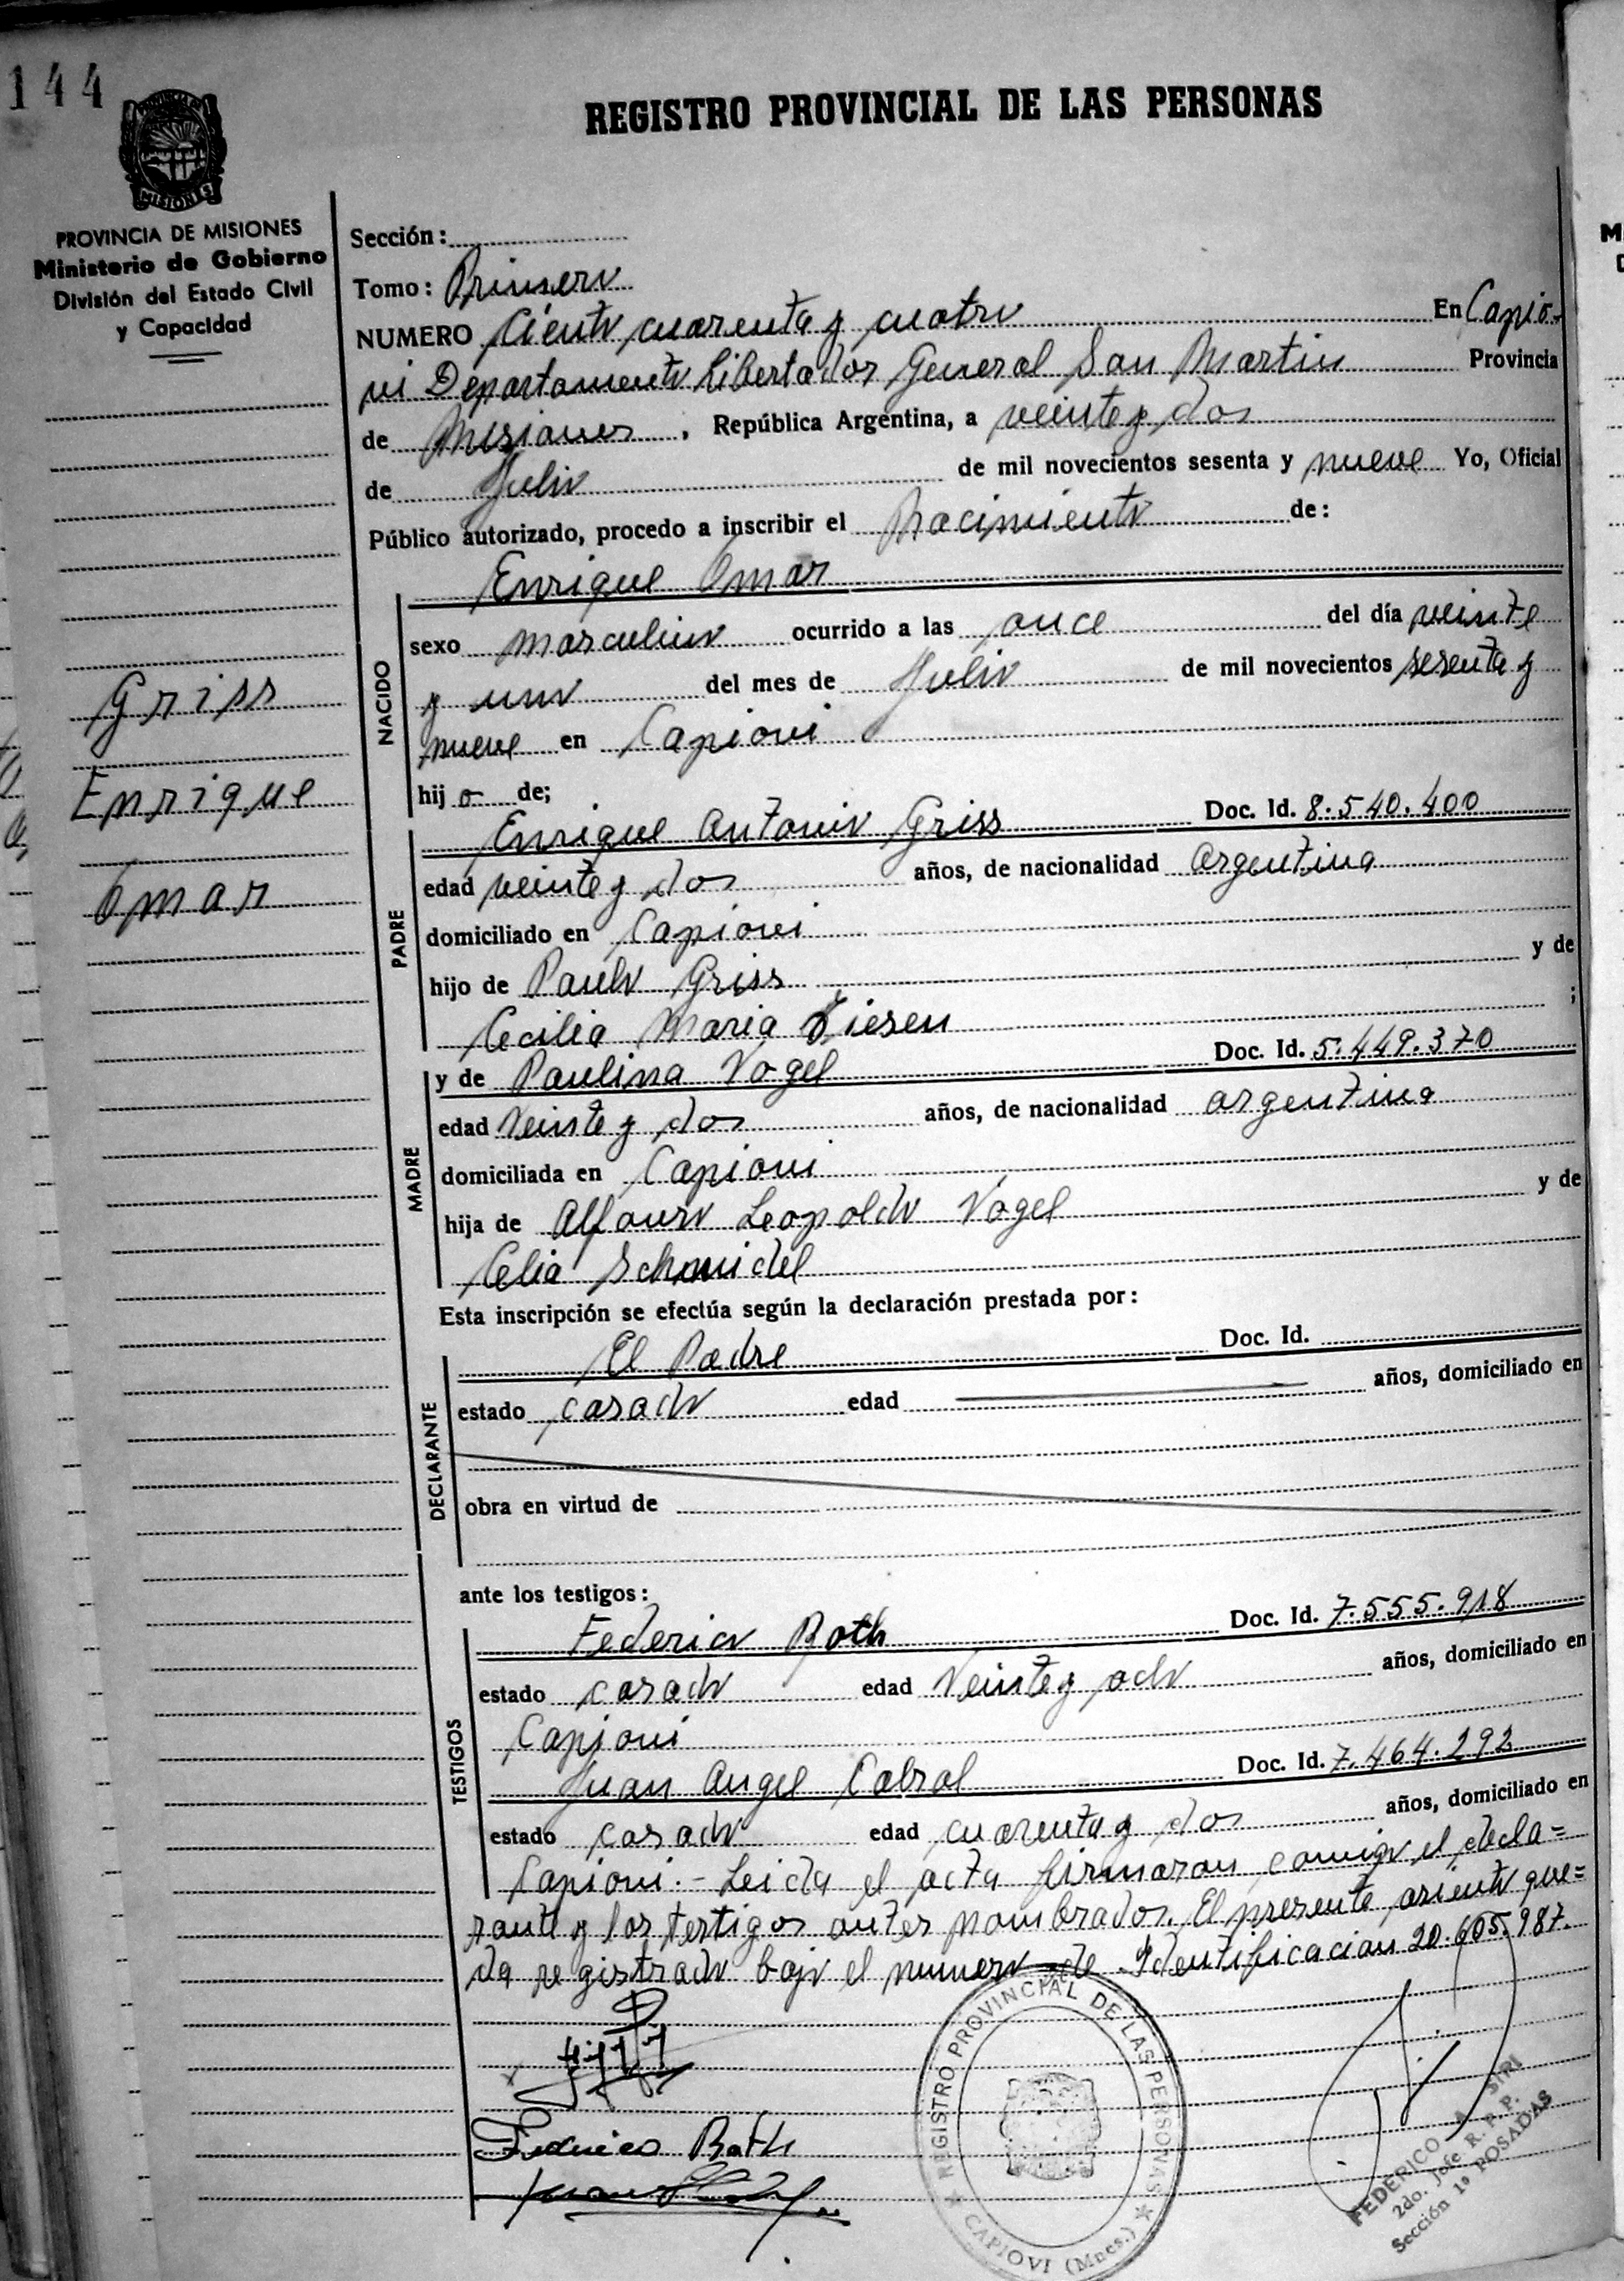 144
MISIONES
PROVINCIA DE MISIONES
Ministerio de Gobierno
División del Estado Civil
y Capacidad
Griss
Enrique
Omar
REGISTRO PROVINCIAL DE LAS PERSONAS
Sección:
Tomo: Primero
NUMERO Ciento cuarenta y cuatro En Capio-
vi Departamento Libertador General San Martin Provincia
de Misiones, República Argentina, a veinte y dos
de Julio de mil novecientos sesenta y nueve Yo, Oficial
Público autorizado, procedo a inscribir el Nacimiento de:
Enrique Omar
NACIDO
sexo masculino ocurrido a las once del día veinte
y uno del mes de Julio de mil novecientos sesenta y
nueve en Capiovi
hijo de;
PADRE
Enrique Antonio Griss Doc. Id. 8.540.400
edad veinte y dos años, de nacionalidad Argentina
domiciliado en Capiovi
hijo de Paulo Griss y de
Cecilia Maria Tiesen ;
MADRE
y de Paulina Vogel Doc. Id. 5.449.370
edad Veinte y dos años, de nacionalidad argentina
domiciliada en Capiovi
hija de Alfonso Leopoldo Vogel y de
Celia Schmidel
Esta inscripción se efectúa según la declaración prestada por:
DECLARANTE
El Padre Doc. Id.
estado casado edad años, domiciliado en
obra en virtud de
ante los testigos:
TESTIGOS
Federico Roth Doc. Id. 7.555.918
estado casado edad Veinte y ocho años, domiciliado en
Capiovi
Juan Angel Cabral Doc. Id. 7.464.292
estado casado edad cuarenta y dos años, domiciliado en
Capiovi.- Leida el acta firmaron conmigo el decla=
rante y los testigos antes nombrados. El presente asiento que=
da registrado bajo el numero de Identificacion 20.605.987.
Federico Roth
REGISTRO PROVINCIAL DE LAS PERSONAS
CAPIOVI (Mnes.)
FEDERICO A. SIRI
2do. Jefe R. P. P.
Sección 1º POSADAS